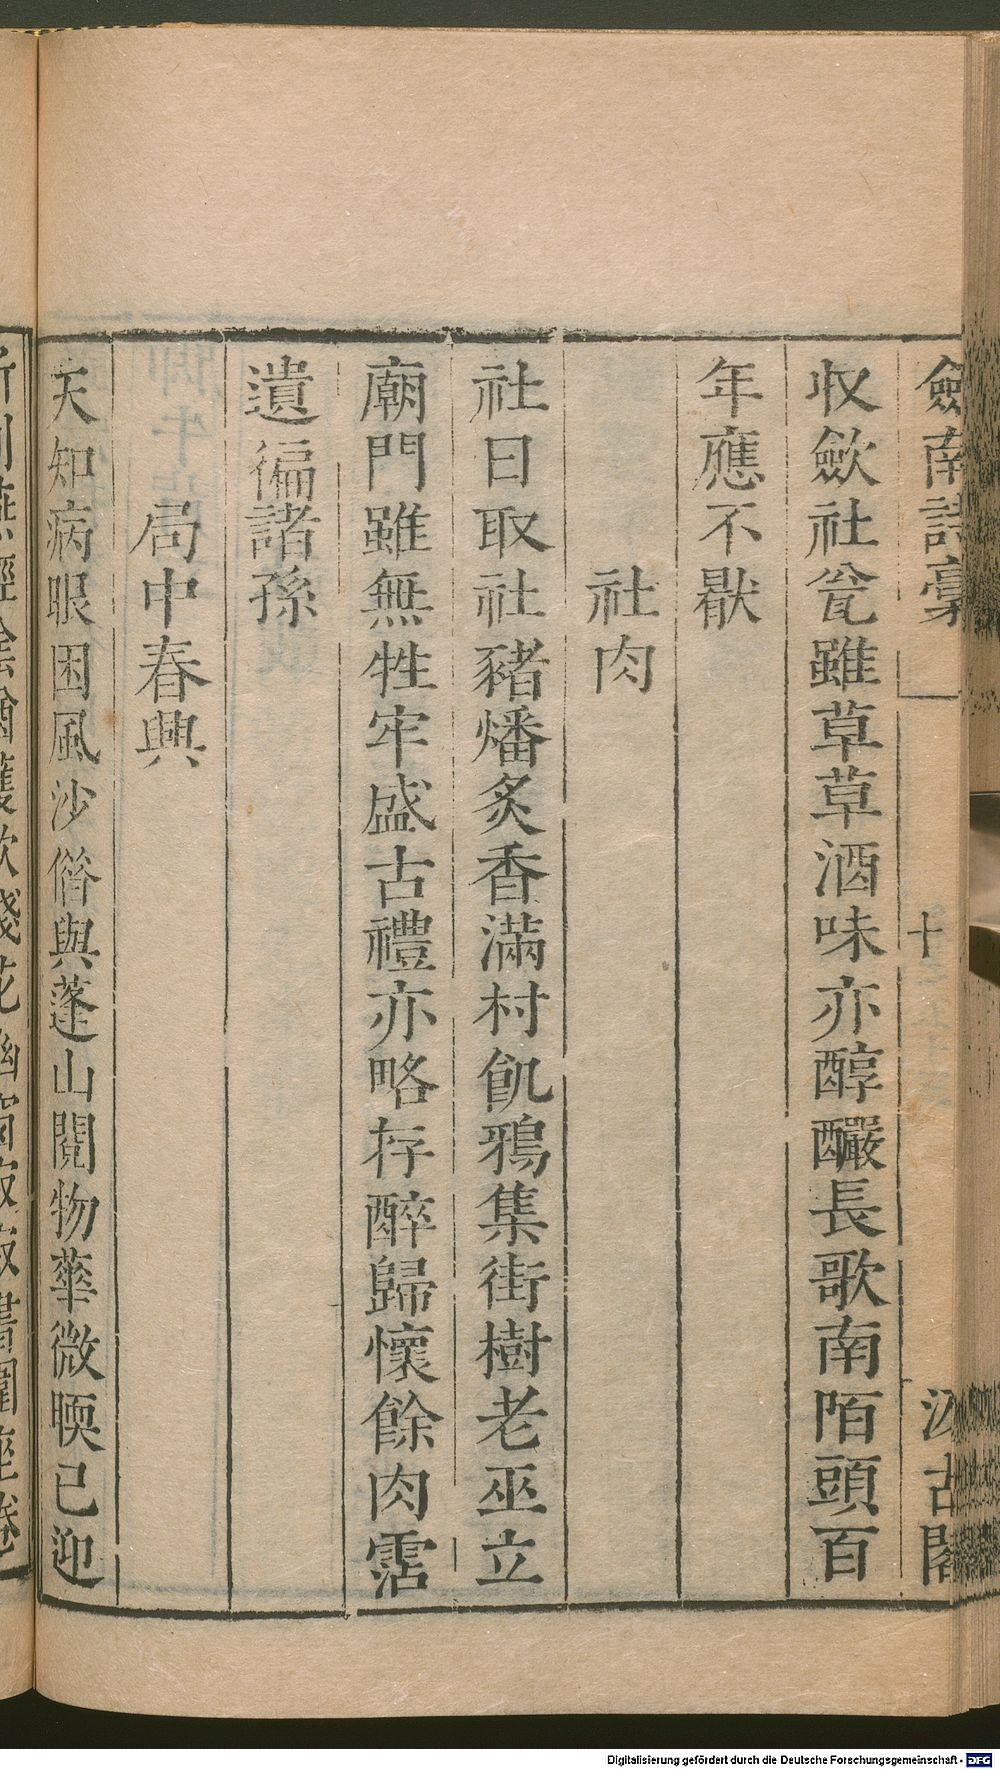 劍南詩稾 十 汲古閣
收斂社瓮雖草草酒味亦醇釅長歌南陌頭百
年應不厭
社肉
社日取社豬燔炙香滿村飢鴉集街樹老巫立
廟門雖無牲牢盛古禮亦略存醉歸懷餘肉霑
遺徧諸孫
局中春興
天知病眼困風沙偺與蓬山閱物華微暝已迎
Digitalisierung gefördert durch die Deutsche Forschungsgemeinschaft - DFG